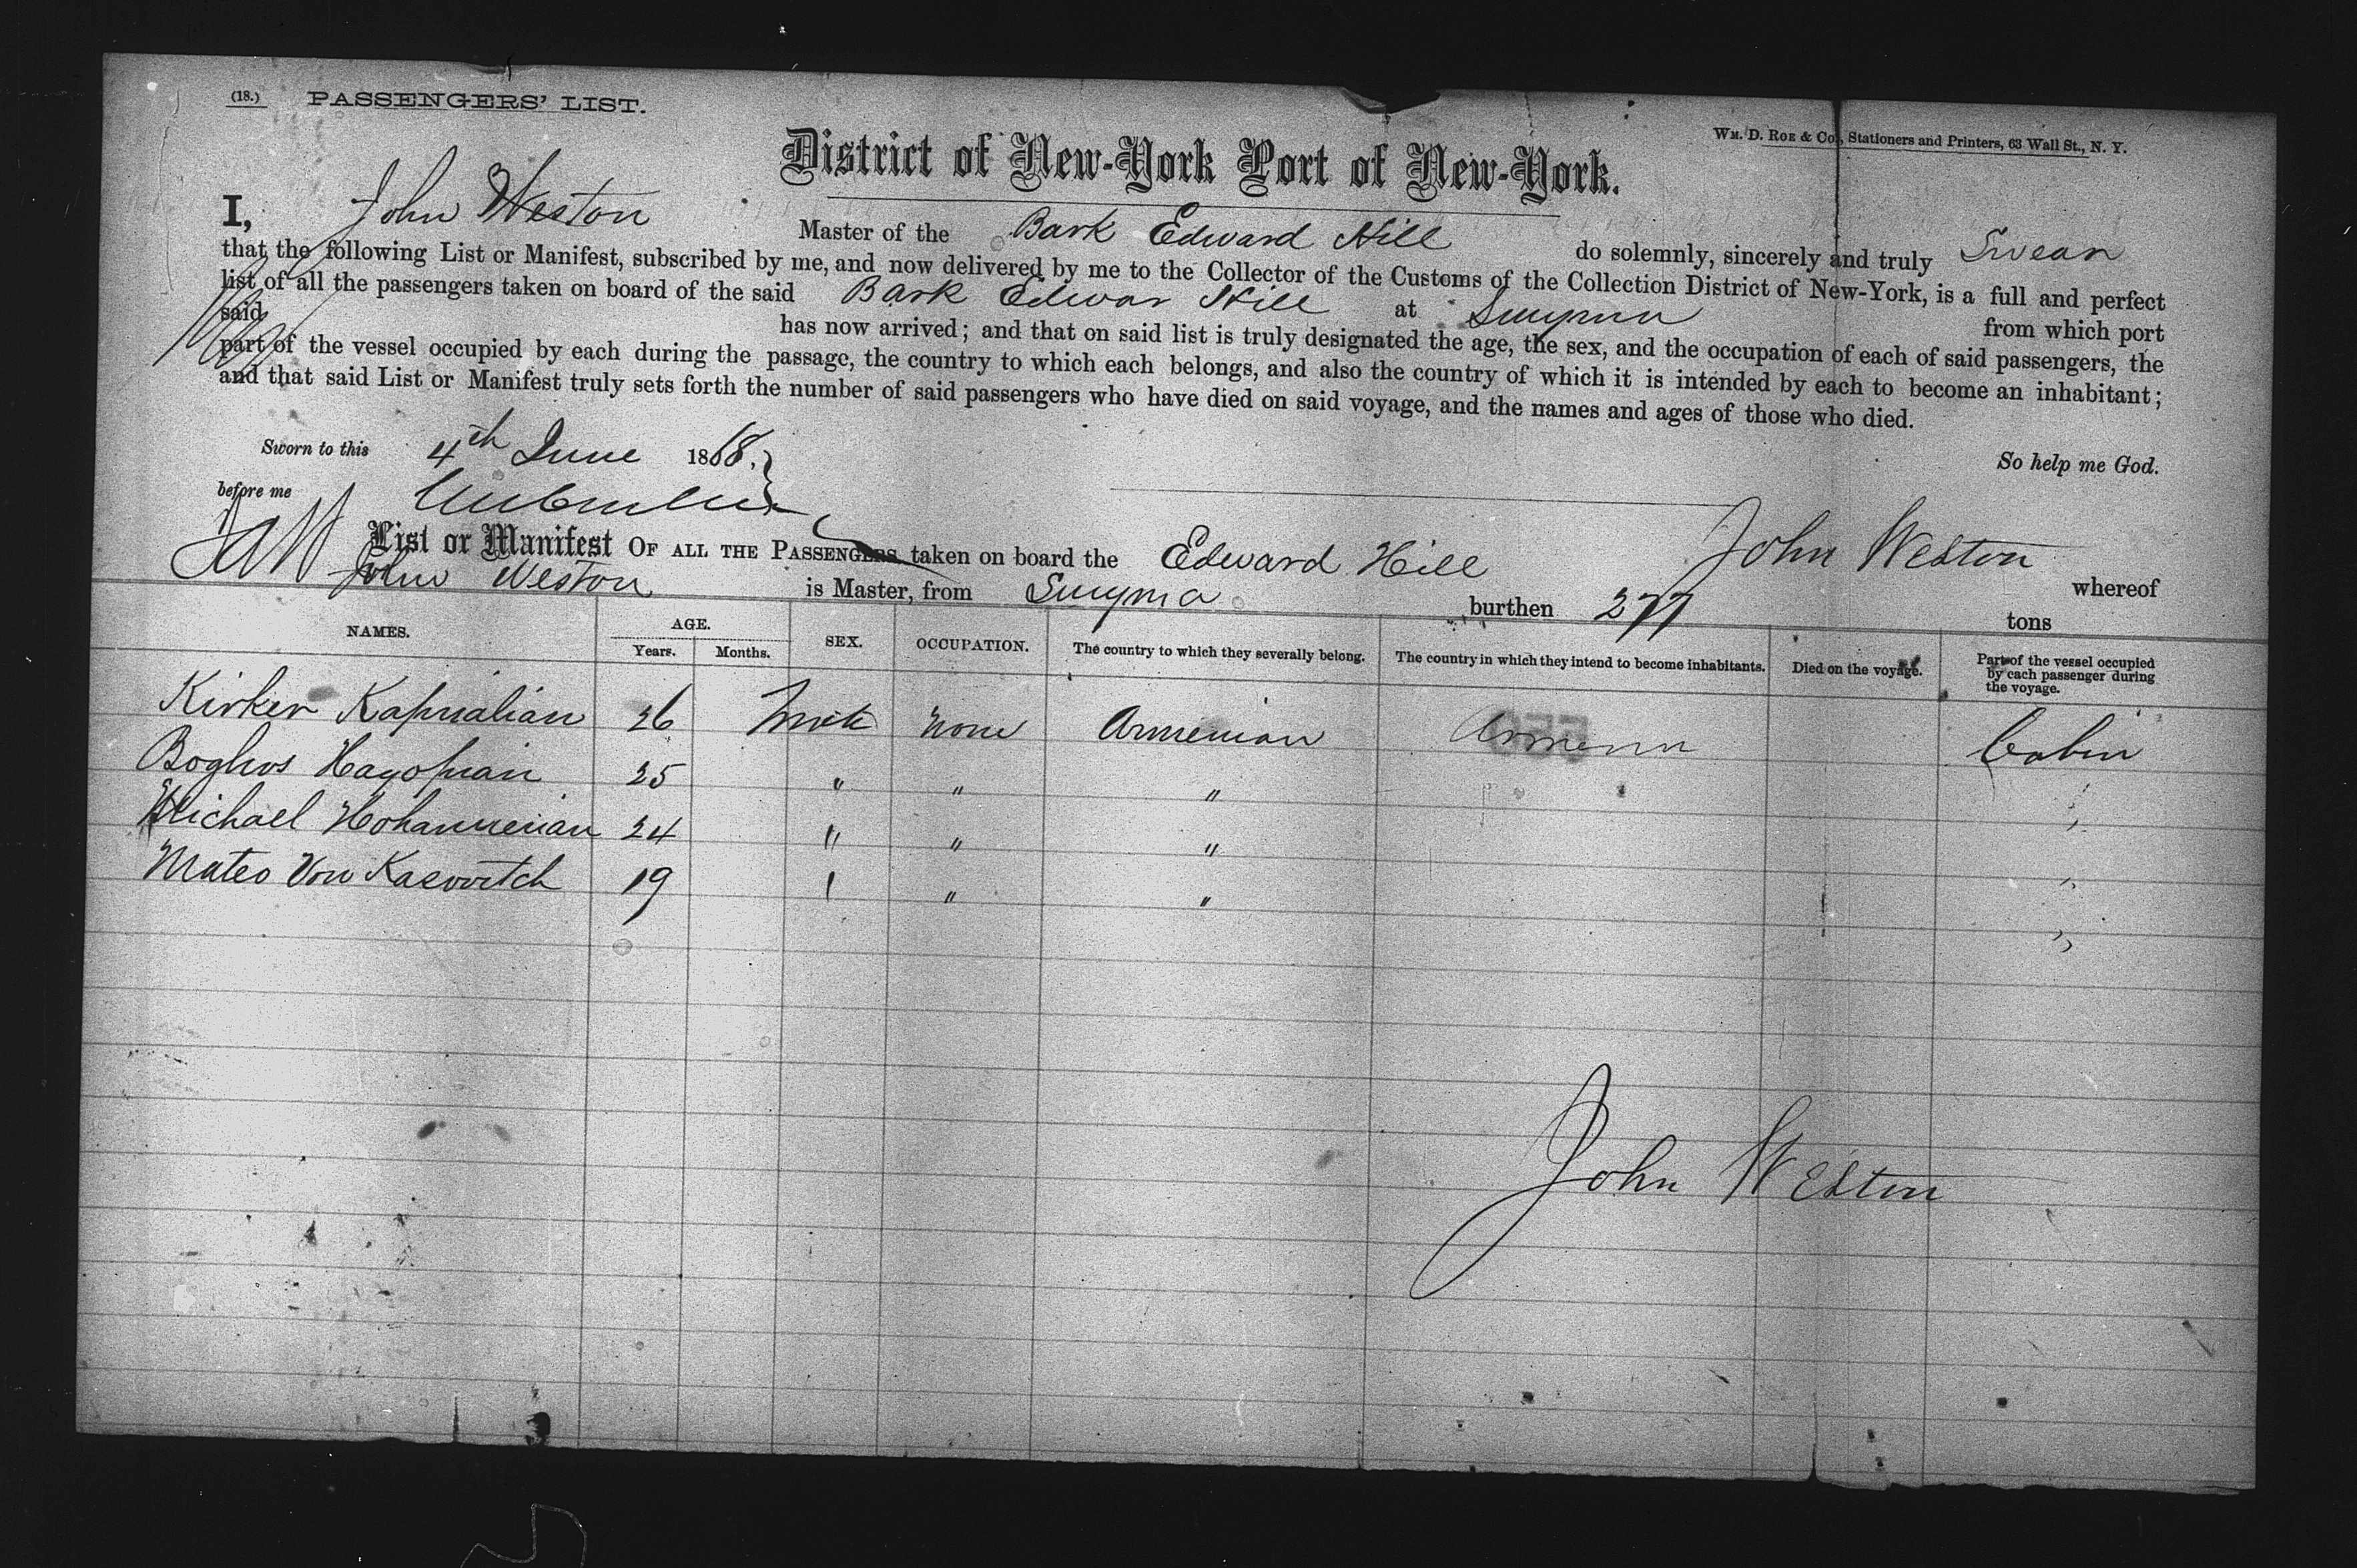 (18.) PASSENGERS' LIST.
WM. D. ROE & Co., Stationers and Printers, 63 Wall St., N. Y.
District of New-York Port of New-York.
I, John Weston Master of the Bark Edward Hill do solemnly, sincerely and truly Swear
that the following List or Manifest, subscribed by me, and now delivered by me to the Collector of the Customs of the Collection District of New-York, is a full and perfect
list of all the passengers taken on board of the said Bark Edwar Hill at Smyrna from which port
said has now arrived; and that on said list is truly designated the age, the sex, and the occupation of each of said passengers, the
part of the vessel occupied by each during the passage, the country to which each belongs, and also the country of which it is intended by each to become an inhabitant;
and that said List or Manifest truly sets forth the number of said passengers who have died on said voyage, and the names and ages of those who died.
Sworn to this 4th June 1868. So help me God.
before me
John Weston
List or Manifest OF ALL THE PASSENGERS taken on board the Edward Hill whereof
John Weston is Master, from Smyrna burthen 277 tons
NAMES. AGE. Years. Months. SEX. OCCUPATION. The country to which they severally belong. The country in which they intend to become inhabitants. Died on the voyage. Part of the vessel occupied by each passenger during the voyage.
Kirker Kaprialian 26 Male None Armenian Armenia Cabin
Boghos Hagopian 25 " " " "
Michael Hohannenian 24 " " " "
Mateo Von Kasovitch 19 " " "
John Weston